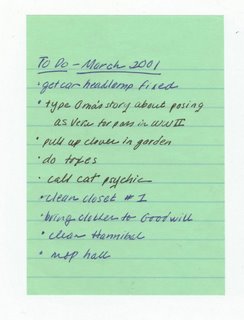 To Do - March 2001
• get car headlamp fixed
• type Oma's story about posing
as Vera for pass in WW II
• pull up clover in garden
• do taxes
• call cat psychic
• clean closet # 1
• bring clothes to Goodwill
• clean Hannibal
• mop hall